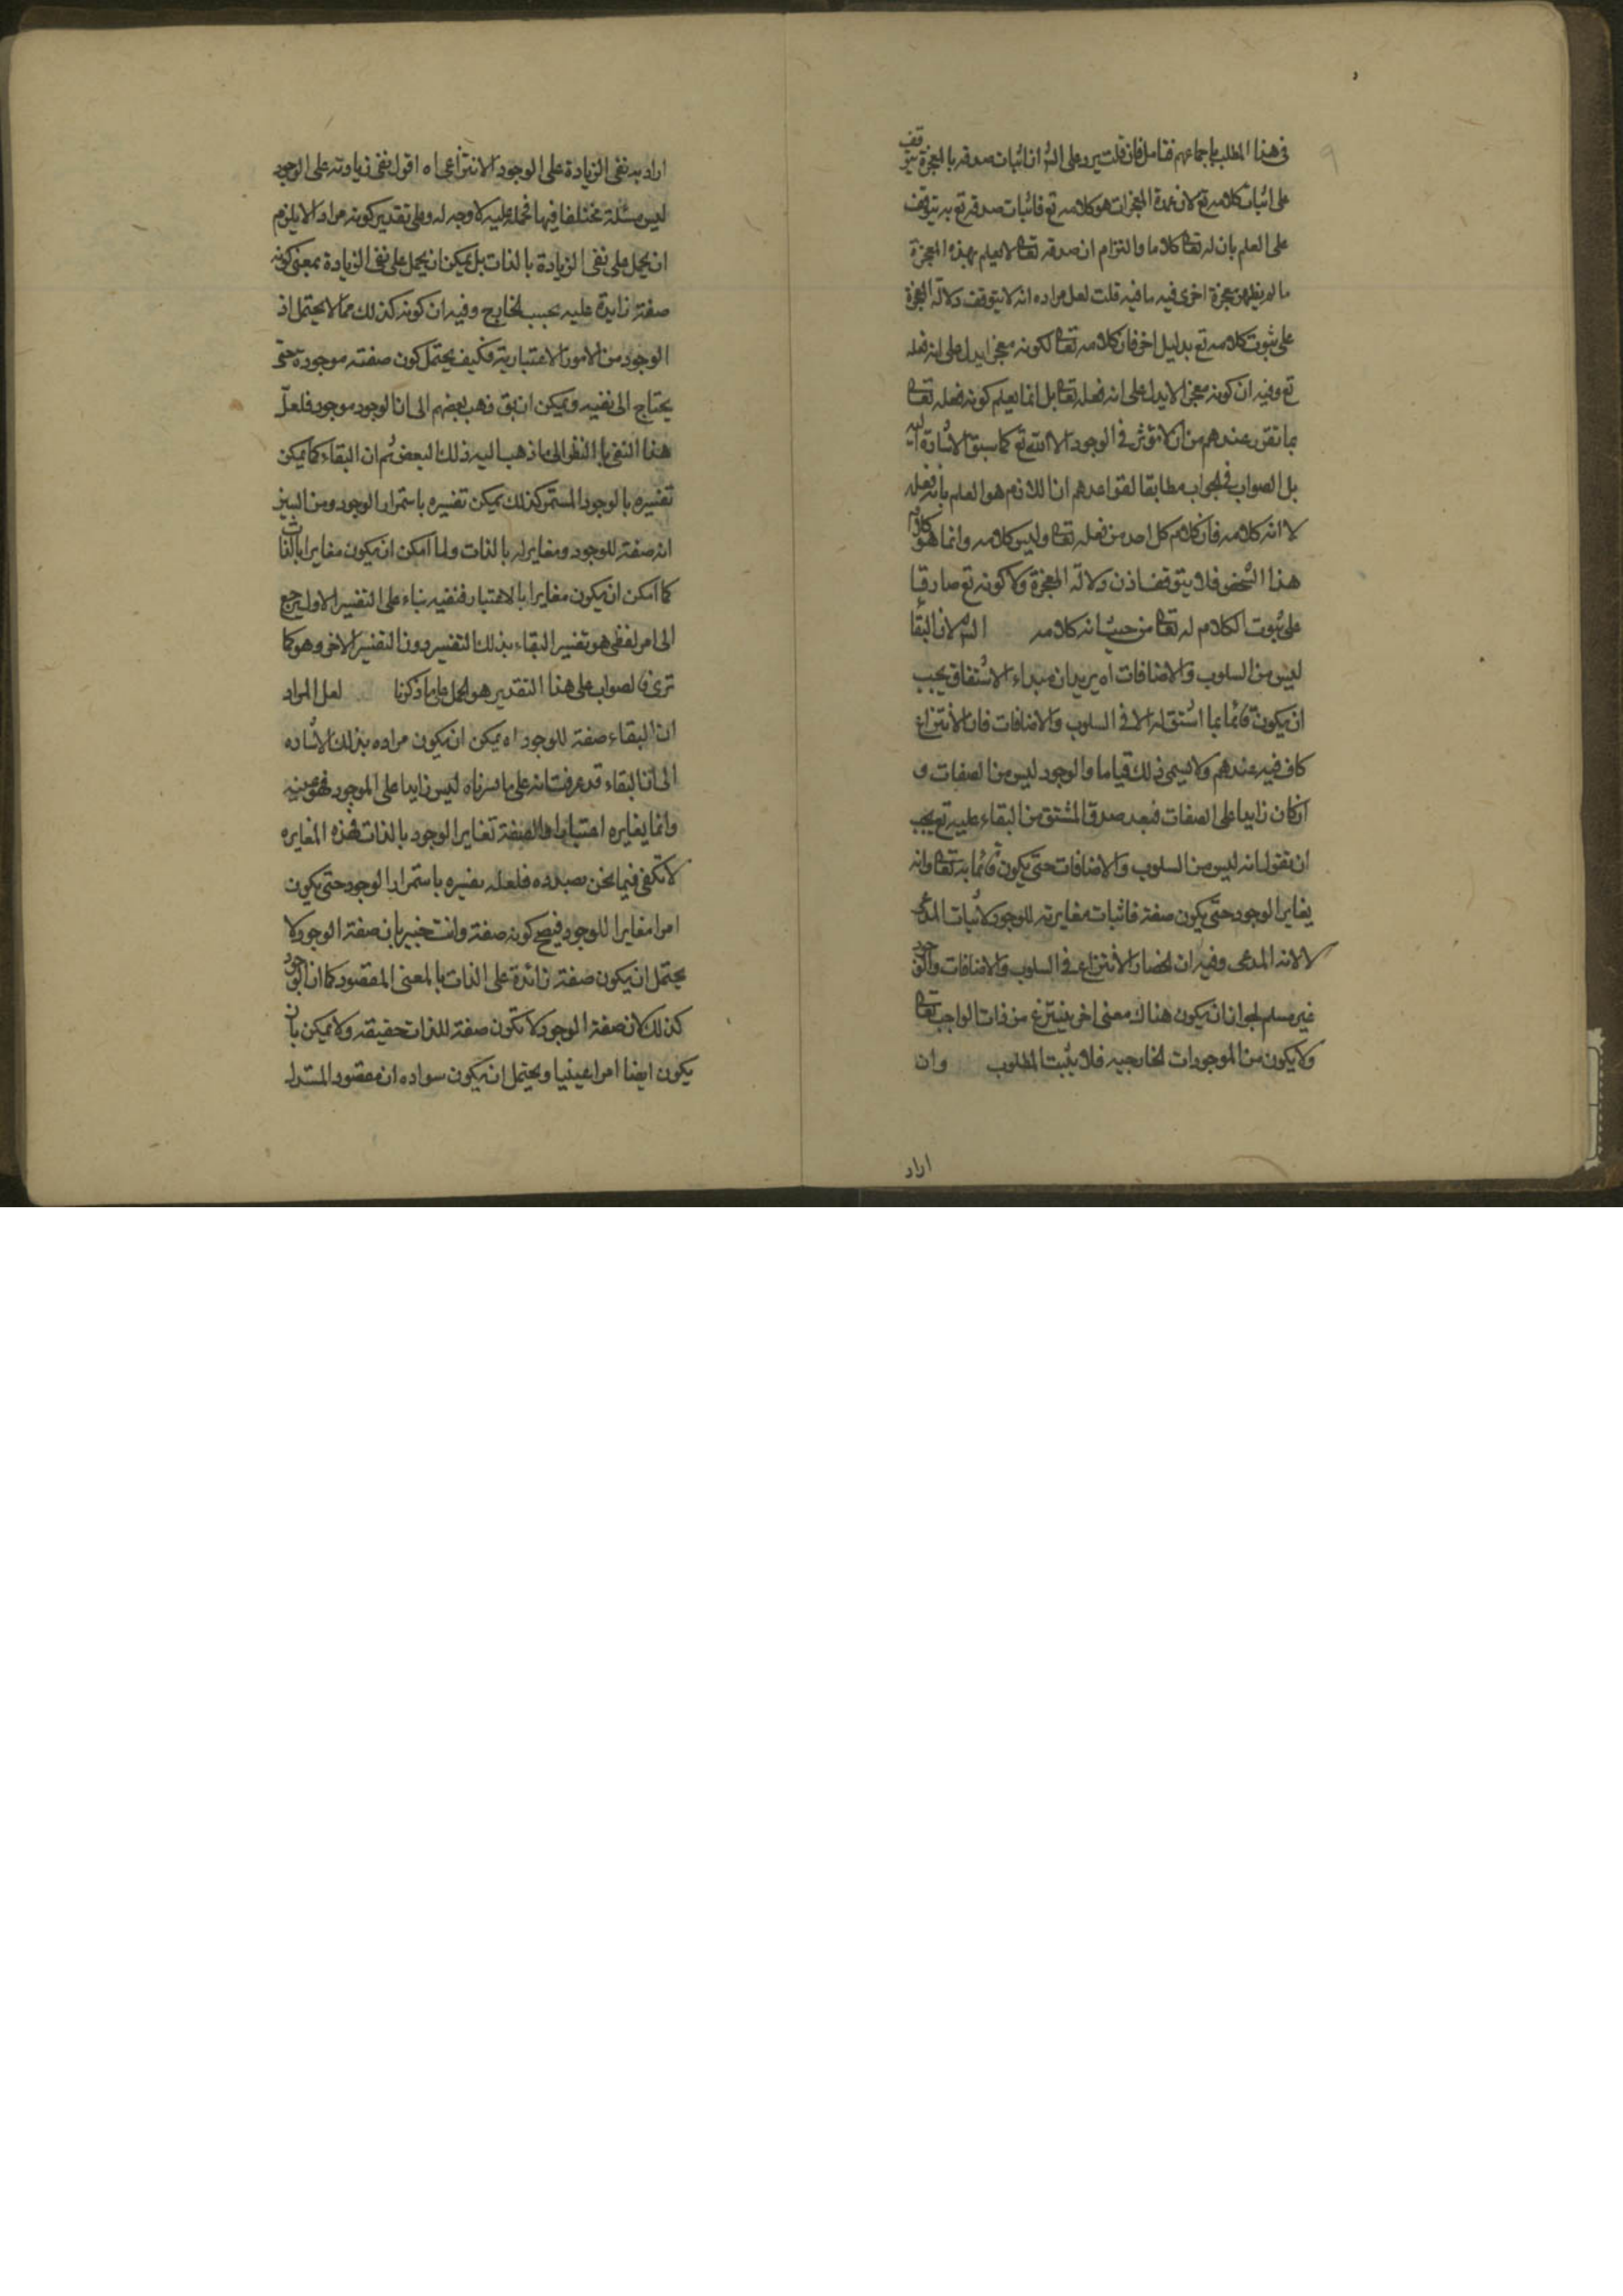 في هذا المطلب باجماعهم فتامل فان قلت يرد على الش ان اثبات صدقه بالمعجزة يتوقف
على اثبات كلامه تع لان عمدة المعجزات هو كلامه تع فاثبات صدقه تع به يتوقف
على العلم بان له تعالى كلاما والتزام ان صدقه تعالى لا يعلم بهذه المعجزة
ما لم يظهر معجزة اخرى فيه ما فيه قلت لعل مراده انه لا يتوقف دلالة المعجزة
على ثبوت كلامه تع بدليل اخر فان كلامه تعالى لكونه معجزا يدل على انه فعله
تع وفيه ان كونه معجزا لا يدل على انه فعله تعالى بل انما يعلم كونه فعله تعالى
بما تقرر عندهم من ان لا مؤثر في الوجود الا الله تع كما سبق الاشارة اليه
بل الصواب في الجواب مطابقا لقواعدهم ان اللازم هو العلم بانه فعله
لا انه كلامه فان كلام كل احد من فعله تعالى وليس كلامه وانما هو كلام
هذا الشخص فلا يتوقف اذن دلالة المعجزة ولا كونه تع صادقا
على ثبوت الكلام له تعالى من حيث انه كلامه الش لان البقاء
ليس من السلوب والاضافات اه يريد ان مبداء الاشتقاق يجب
ان يكون قائما بما اشتق له الا في السلوب والاضافات فان الانتزاع
كاف فيه عندهم ولا يسمى ذلك قياما والوجود ليس من الصفات و
ان كان زايدا على الصفات فبعد صدق المشتق من البقاء عليه تع يجب
ان نقول انه ليس من السلوب والاضافات حتى يكون قائما به تعالى وانه
يغاير الوجود حتى يكون صفة فاثبات مغايرته للوجود لاثبات المدعى
لا لانه المدعى وفيه ان انحصار الانتزاع في السلوب والاضافات والوجود
غير مسلم لجواز ان يكون هناك معنى اخر ينتزع من ذات الواجب تعالى
ولا يكون من الموجودات الخارجيه فلا يثبت المطلوب وان
اراد
اراد به نفي الزيادة على الوجود الانتزاعي اه اقول نفي زيادته على الوجود
ليس مسئلة مختلفا فيها فحمله عليه لا وجه له وعلى تقدير كونه مراد الا يلزم
ان يحمل على نفي الزيادة بالذات بل يمكن ان يحمل على نفي الزيادة بمعنى كونه
صفة زايدة عليه بحسب الخارج وفيه ان كونه كذلك مما لا يحتمل اذ
الوجود من الامور الاعتبارية فكيف يحتمل كون صفته موجودة حتى
يحتاج الى نفيه ويمكن ان يق ذهب بعضهم الى ان الوجود موجود فلعل
هذا النفي بالنظر الى ما ذهب اليه ذلك البعض ثم ان البقاء كما يمكن
تفسيره بالوجود المستمر كذلك يمكن تفسيره باستمرار الوجود ومن البين
انه صفة للوجود ومغاير له بالذات ولما امكن ان يكون مغايرا بالذات
كما امكن ان يكون مغايرا بالاعتبار فنفيه بناء على التفسير الاول يرجع
الى امر لفظي هو تفسير البقاء بذلك التفسير دون التفسير الاخر وهو كما
ترى فالصواب على هذا التقدير هو الحمل على ما ذكرنا لعل المراد
ان البقاء صفة للوجود اه يمكن ان يكون مراده بذلك الاشاره
الى ان البقاء قد عرفت انه على ما فسرناه ليس زايدا على الموجود فهو عينه
وانما يغايره اعتبارا والصفة تغاير الوجود بالذات فهذه المغايره
لا تكفي فيما نحن بصدده فلعله يفسره باستمرار الوجود حتى يكون
امرا مغايرا للوجود فيصح كونه صفة وانت خبير بان صفة الوجود لا
يحتمل ان يكون صفة زائدة على الذات بالمعنى المقصود كما ان الوجود
كذلك لان صفة الوجود لا تكون صفة للذات حقيقه ولا يمكن بان
يكون ايضا امرا عينيا ويحتمل ان يكون سواده ان مقصود المستدل